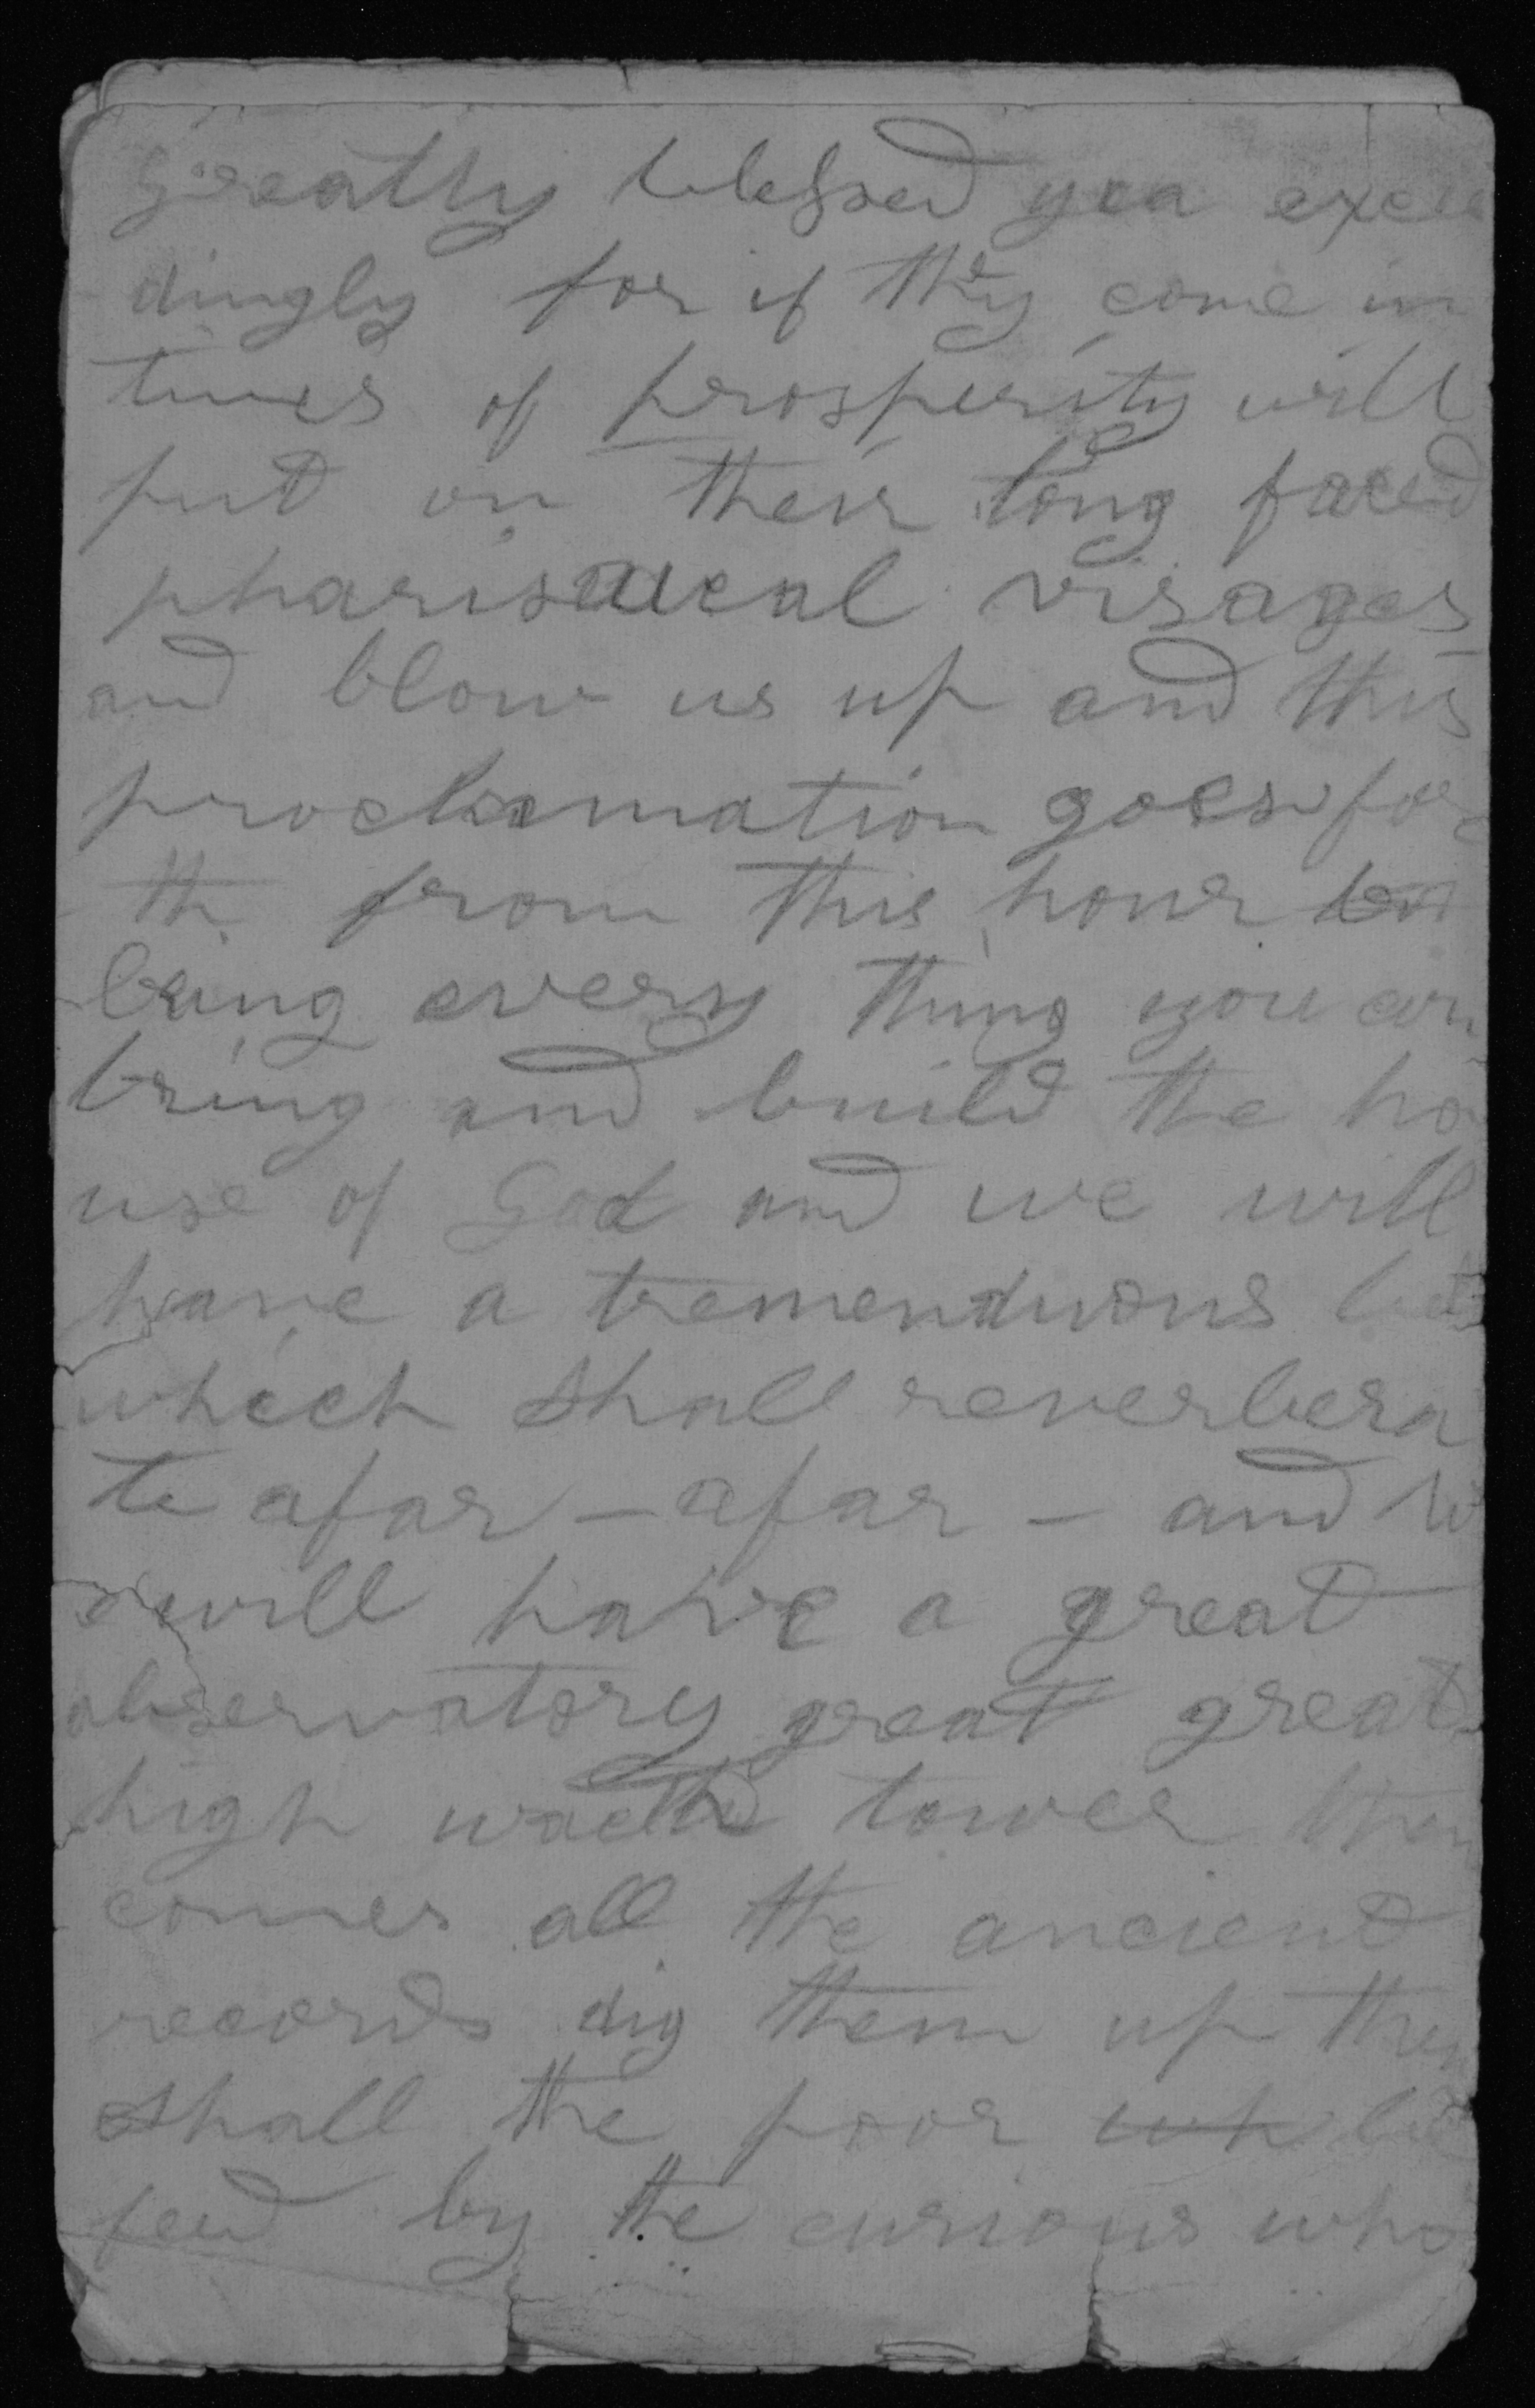 greatly blessed yea excee
dingly for if they come in
times of prosperity will
put on their long faced
pharisaical visages
and blow us up and this
proclamation goes for
th from this hour
bring every thing you can
bring and build the ho
use of God and we will
have a tremenduous
which shall reverbera
te afar – afar – and we
will have a great
observatory great great
high wacth tower then
comes all the ancient
records dig them up then
shall the poor wh be
fed by the curious who